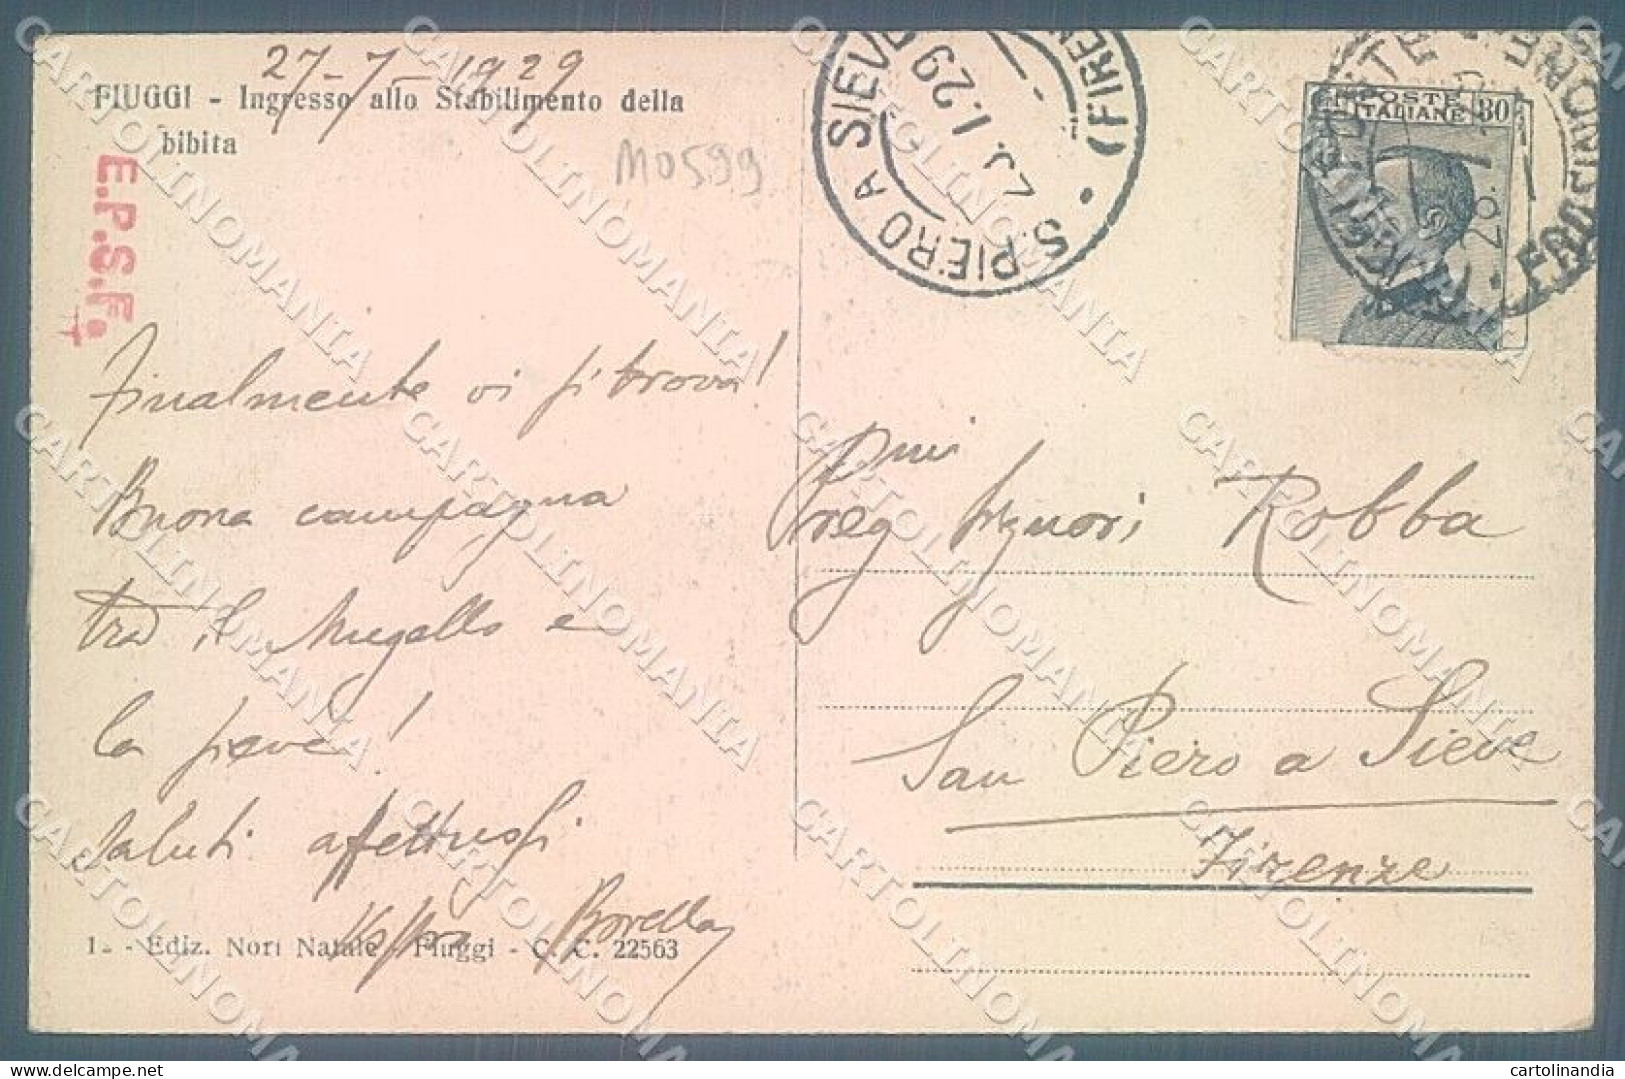 27-7-1929
FIUGGI - Ingresso allo Stabilimento della
bibita
E.P.S.F.
M0599
S. PIERO A SIEVE
(FIREN
1.29
POSTE
ITALIANE
30
28.7
FROSINONE
Finalmente vi si trova!
Buona campagna
tra il Mugello e
la pieve!
Saluti affettuosi
Borella
1 - Ediz. Nori Natale - Fiuggi - C. C. 22563
Preg
mi
Signori Robba
San Piero a Sieve
Firenze
CARTOLINOMANIA
cartolinandia